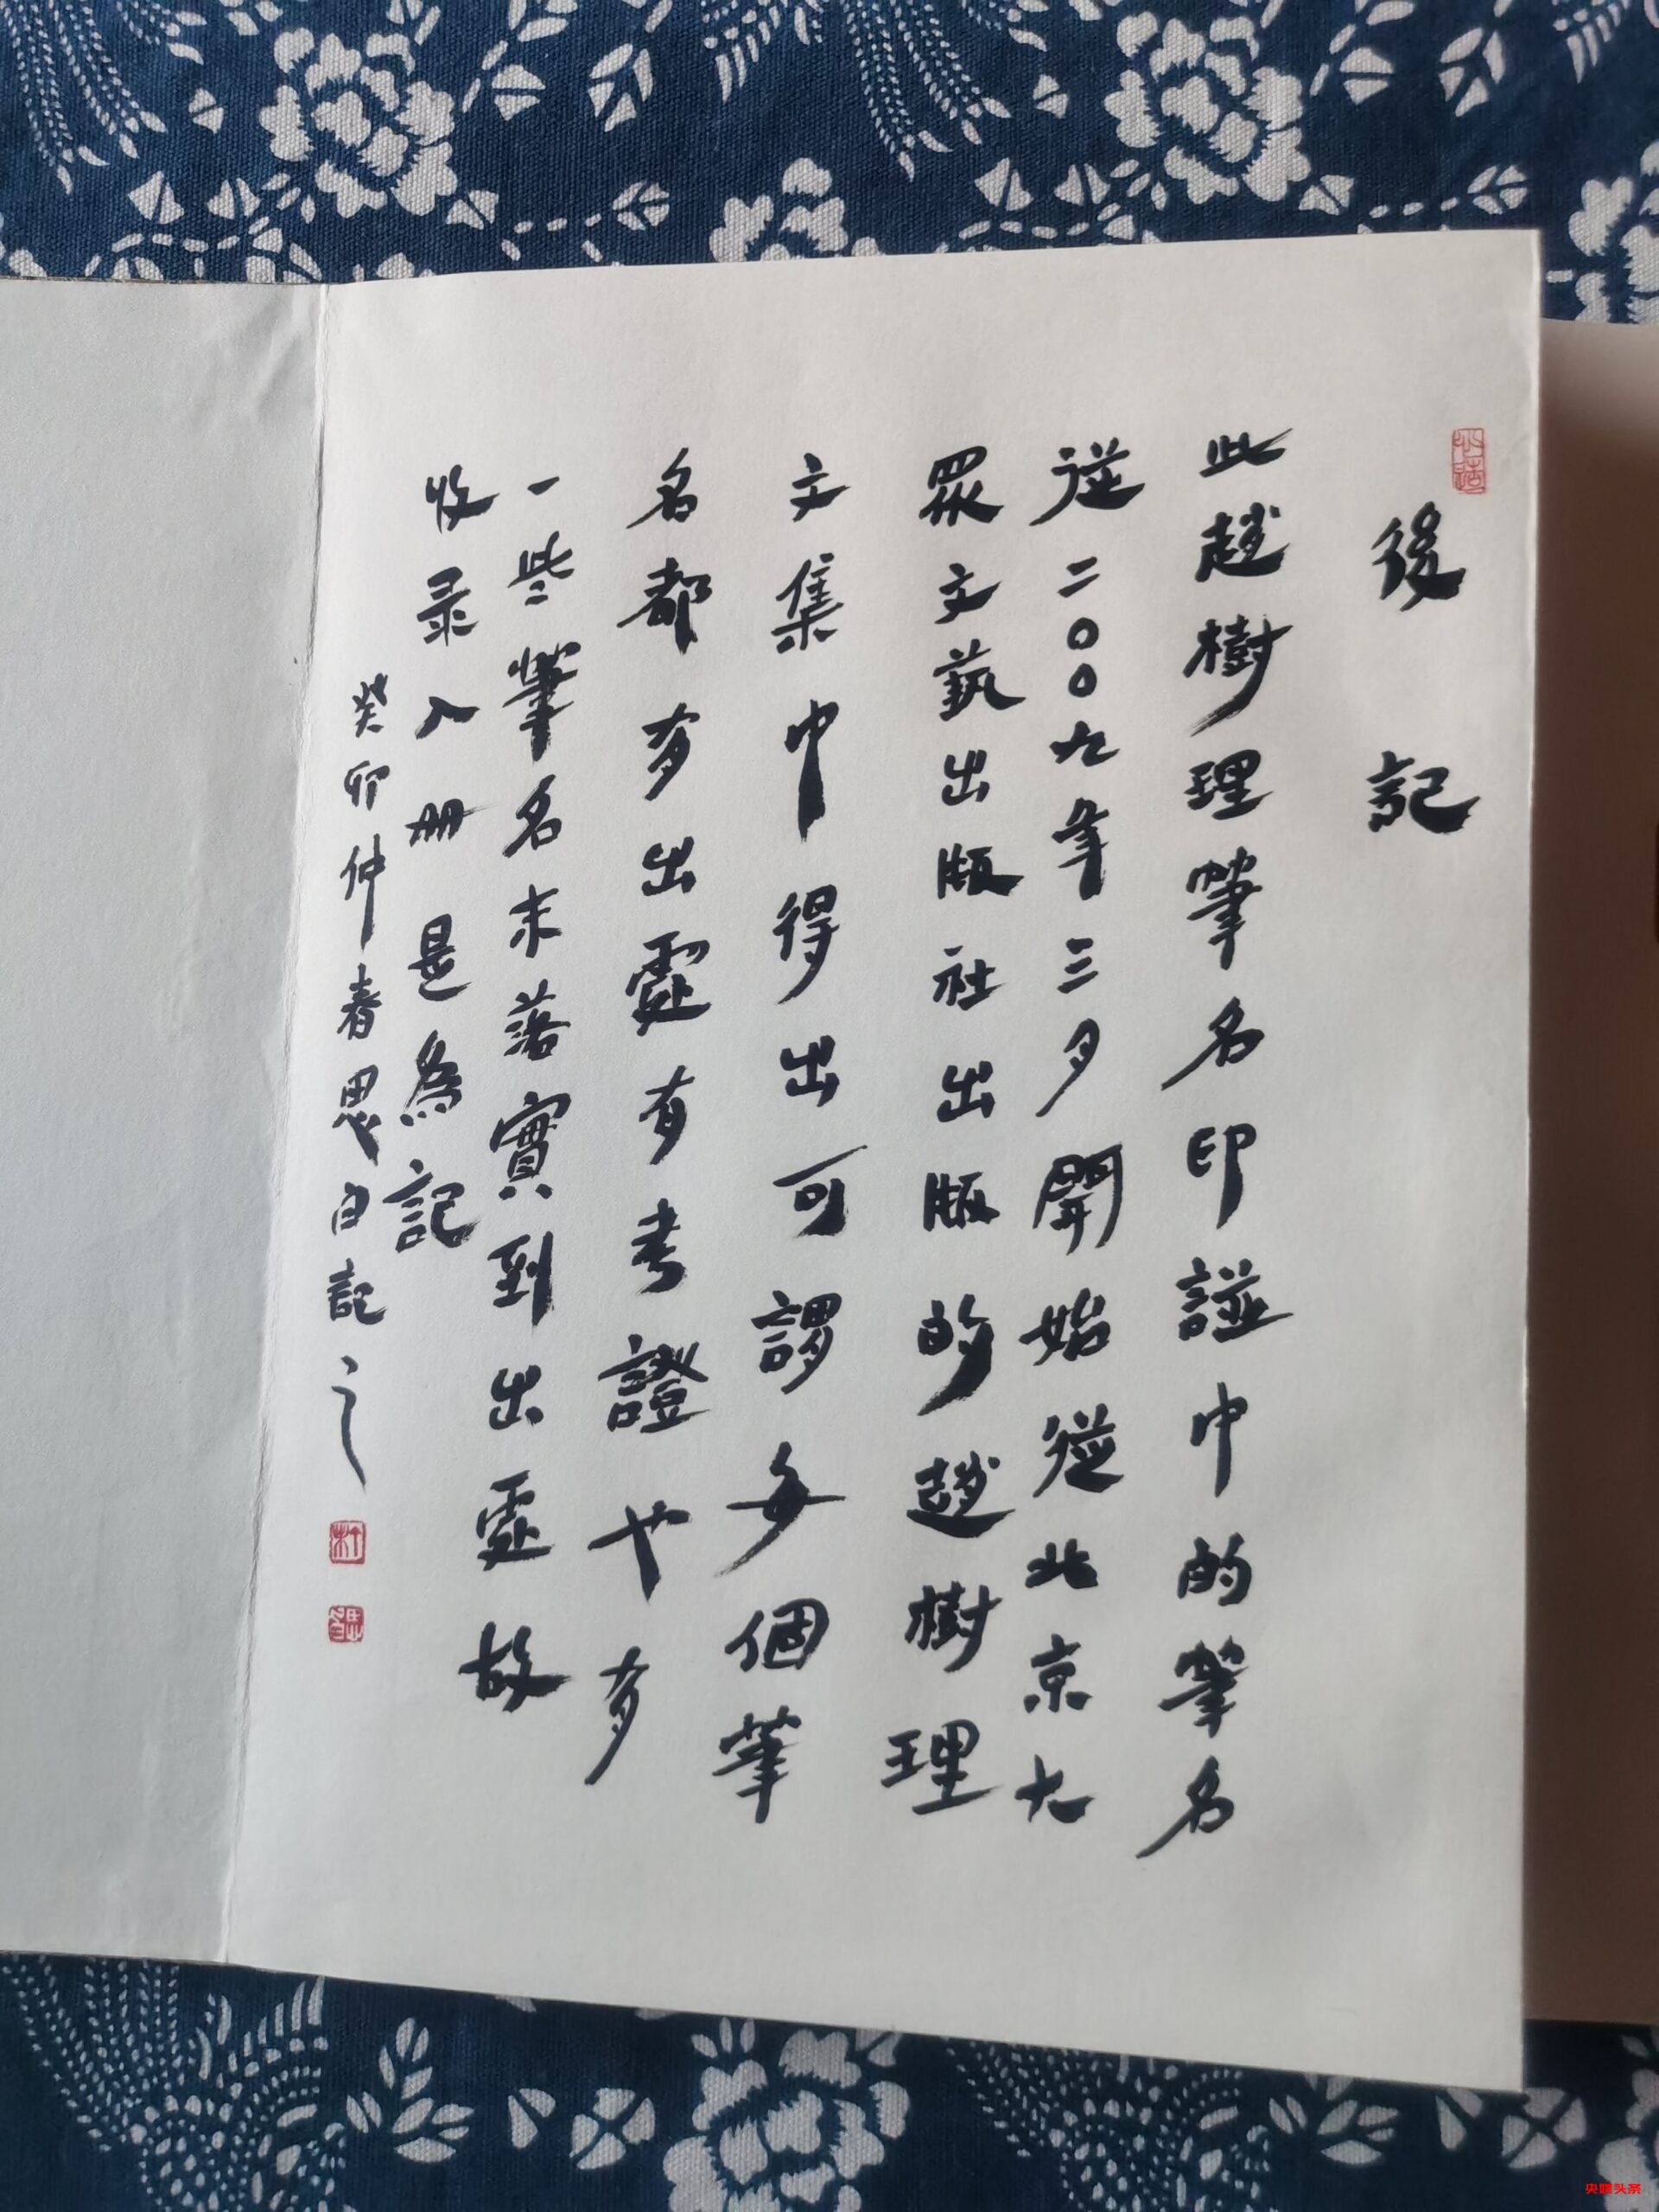 後記
此趙樹理筆名印譜中的筆名
從二〇〇九年三月開始從北京大
眾文藝出版社出版的趙樹理
文集中得出可謂每個筆
名都有出處有考證也有
一些筆名未落實到出處故
收录入册是為記
癸卯仲春思白記之
央媒头条